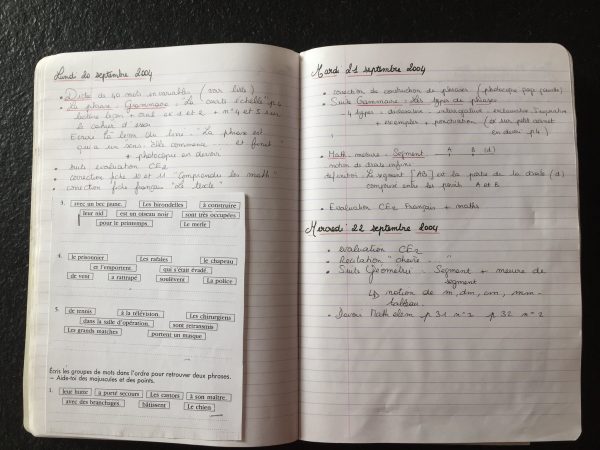 Lundi 20 septembre 2004
• Dictée de 40 mots invariables (voir liste)
• La phrase : Grammaire : La courte échelle p 4
lecture leçon + oral ex 1 et 2 + n° 4 et 5 sur
le cahier d'essai
Ecrire la leçon du livre : "La phrase est
qui a un sens. Elle commence ... et finit"
+ photocopie en devoir
• suite evaluation CE2
• correction fiche 10 et 11 "Comprendre les math"
• correction fiche français "
3. avec un bec jaune. Les hirondelles à construire
leur nid est un oiseau noir sont très occupées
pour le printemps. Le merle
4. le prisonnier Les rafales le chapeau
et l'emportent. qui s'était évadé.
de vent a rattrapé soulèvent La police
5. de tennis à la télévision. Les chirurgiens
dans la salle d'opération. sont retransmis
Les grands matches portent un masque
Écris les groupes de mots dans l'ordre pour retrouver deux phrases.
– Aide-toi des majuscules et des points.
1. leur hutte a porté secours Les castors à son maître.
avec des branchages. bâtissent Le chien
Mardi 21 septembre 2004
• correction de construction de phrases (photocopie page gauche)
• Suite Grammaire : Les types de phrases
4 types : déclarative - interrogative - exclamative - impérative
+ exemples + ponctuation (ex sur petit carnet
en devoir p 4)
• Math : mesure : Segment A B (d)
notion de droite infinie
définition : Le segment [AB] est la partie de la droite (d)
comprise entre les points A et B
• Evaluation CE2 Français + maths
Mercredi : 22 septembre 2004
• evaluation CE2
• Récitation "
• Suite Géométrie : Segment + mesure de
segment
↳ notion de m, dm, cm, mm
tableau
• Devoir Math elem p 31 n° 2 p 32 n° 2